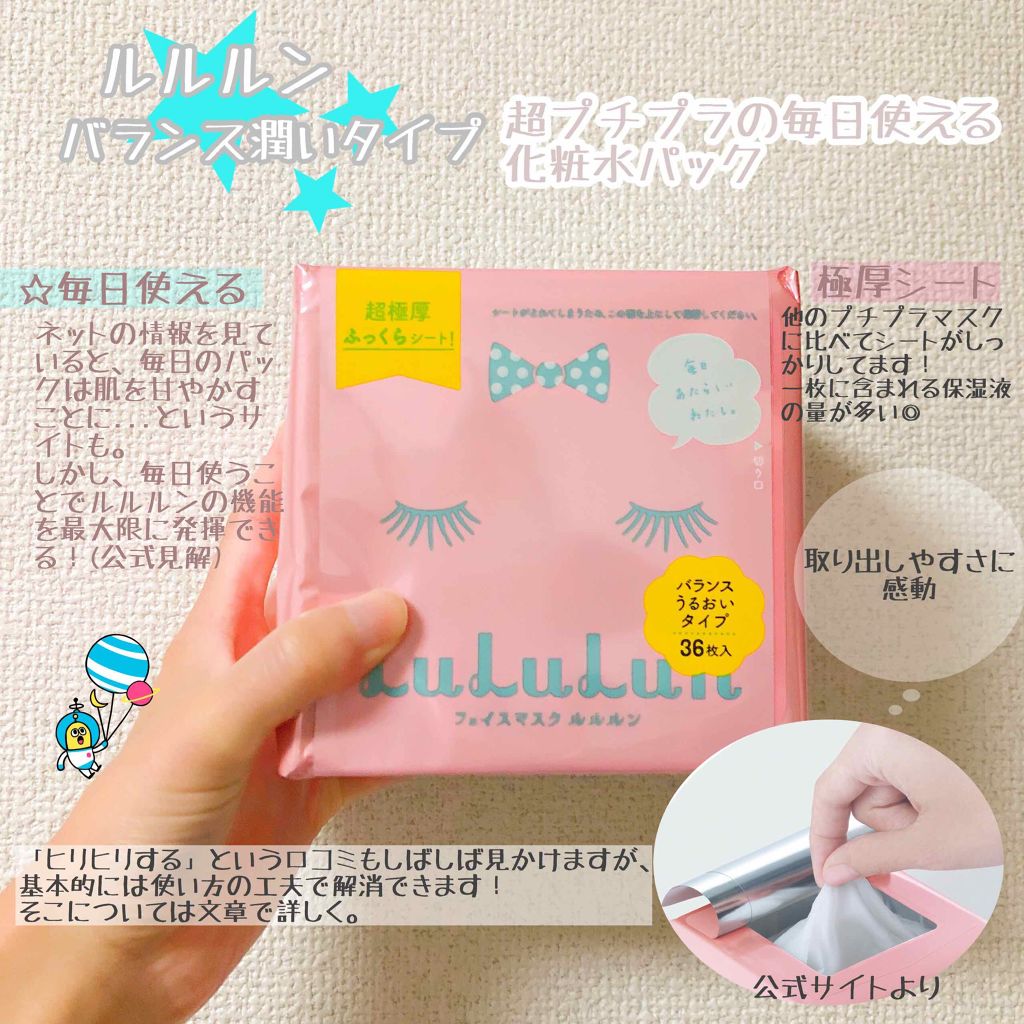 ルルルン
バランス潤いタイプ
超プチプラの毎日使える
化粧水パック
☆毎日使える
ネットの情報を見て
いると、毎日のパッ
クは肌を甘やかす
ことに...というサ
イトも。
しかし、毎日使うこ
とでルルルンの機能
を最大限に発揮でき
る！(公式見解)
極厚シート
他のプチプラマスク
に比べてシートがしっ
かりしてます！
一枚に含まれる保湿液
の量が多い◎
超極厚
ふっくらシート!
シートがよれてしまうため、この面を上にして保管してください。
毎日
あたらしい
わたし。
切り口
バランス
うるおい
タイプ
36枚入
LuLuLun
フェイスマスク ルルルン
取り出しやすさに
感動
「ヒリヒリする」という口コミもしばしば見かけますが、
基本的には使い方の工夫で解消できます！
そこについては文章で詳しく。
公式サイトより